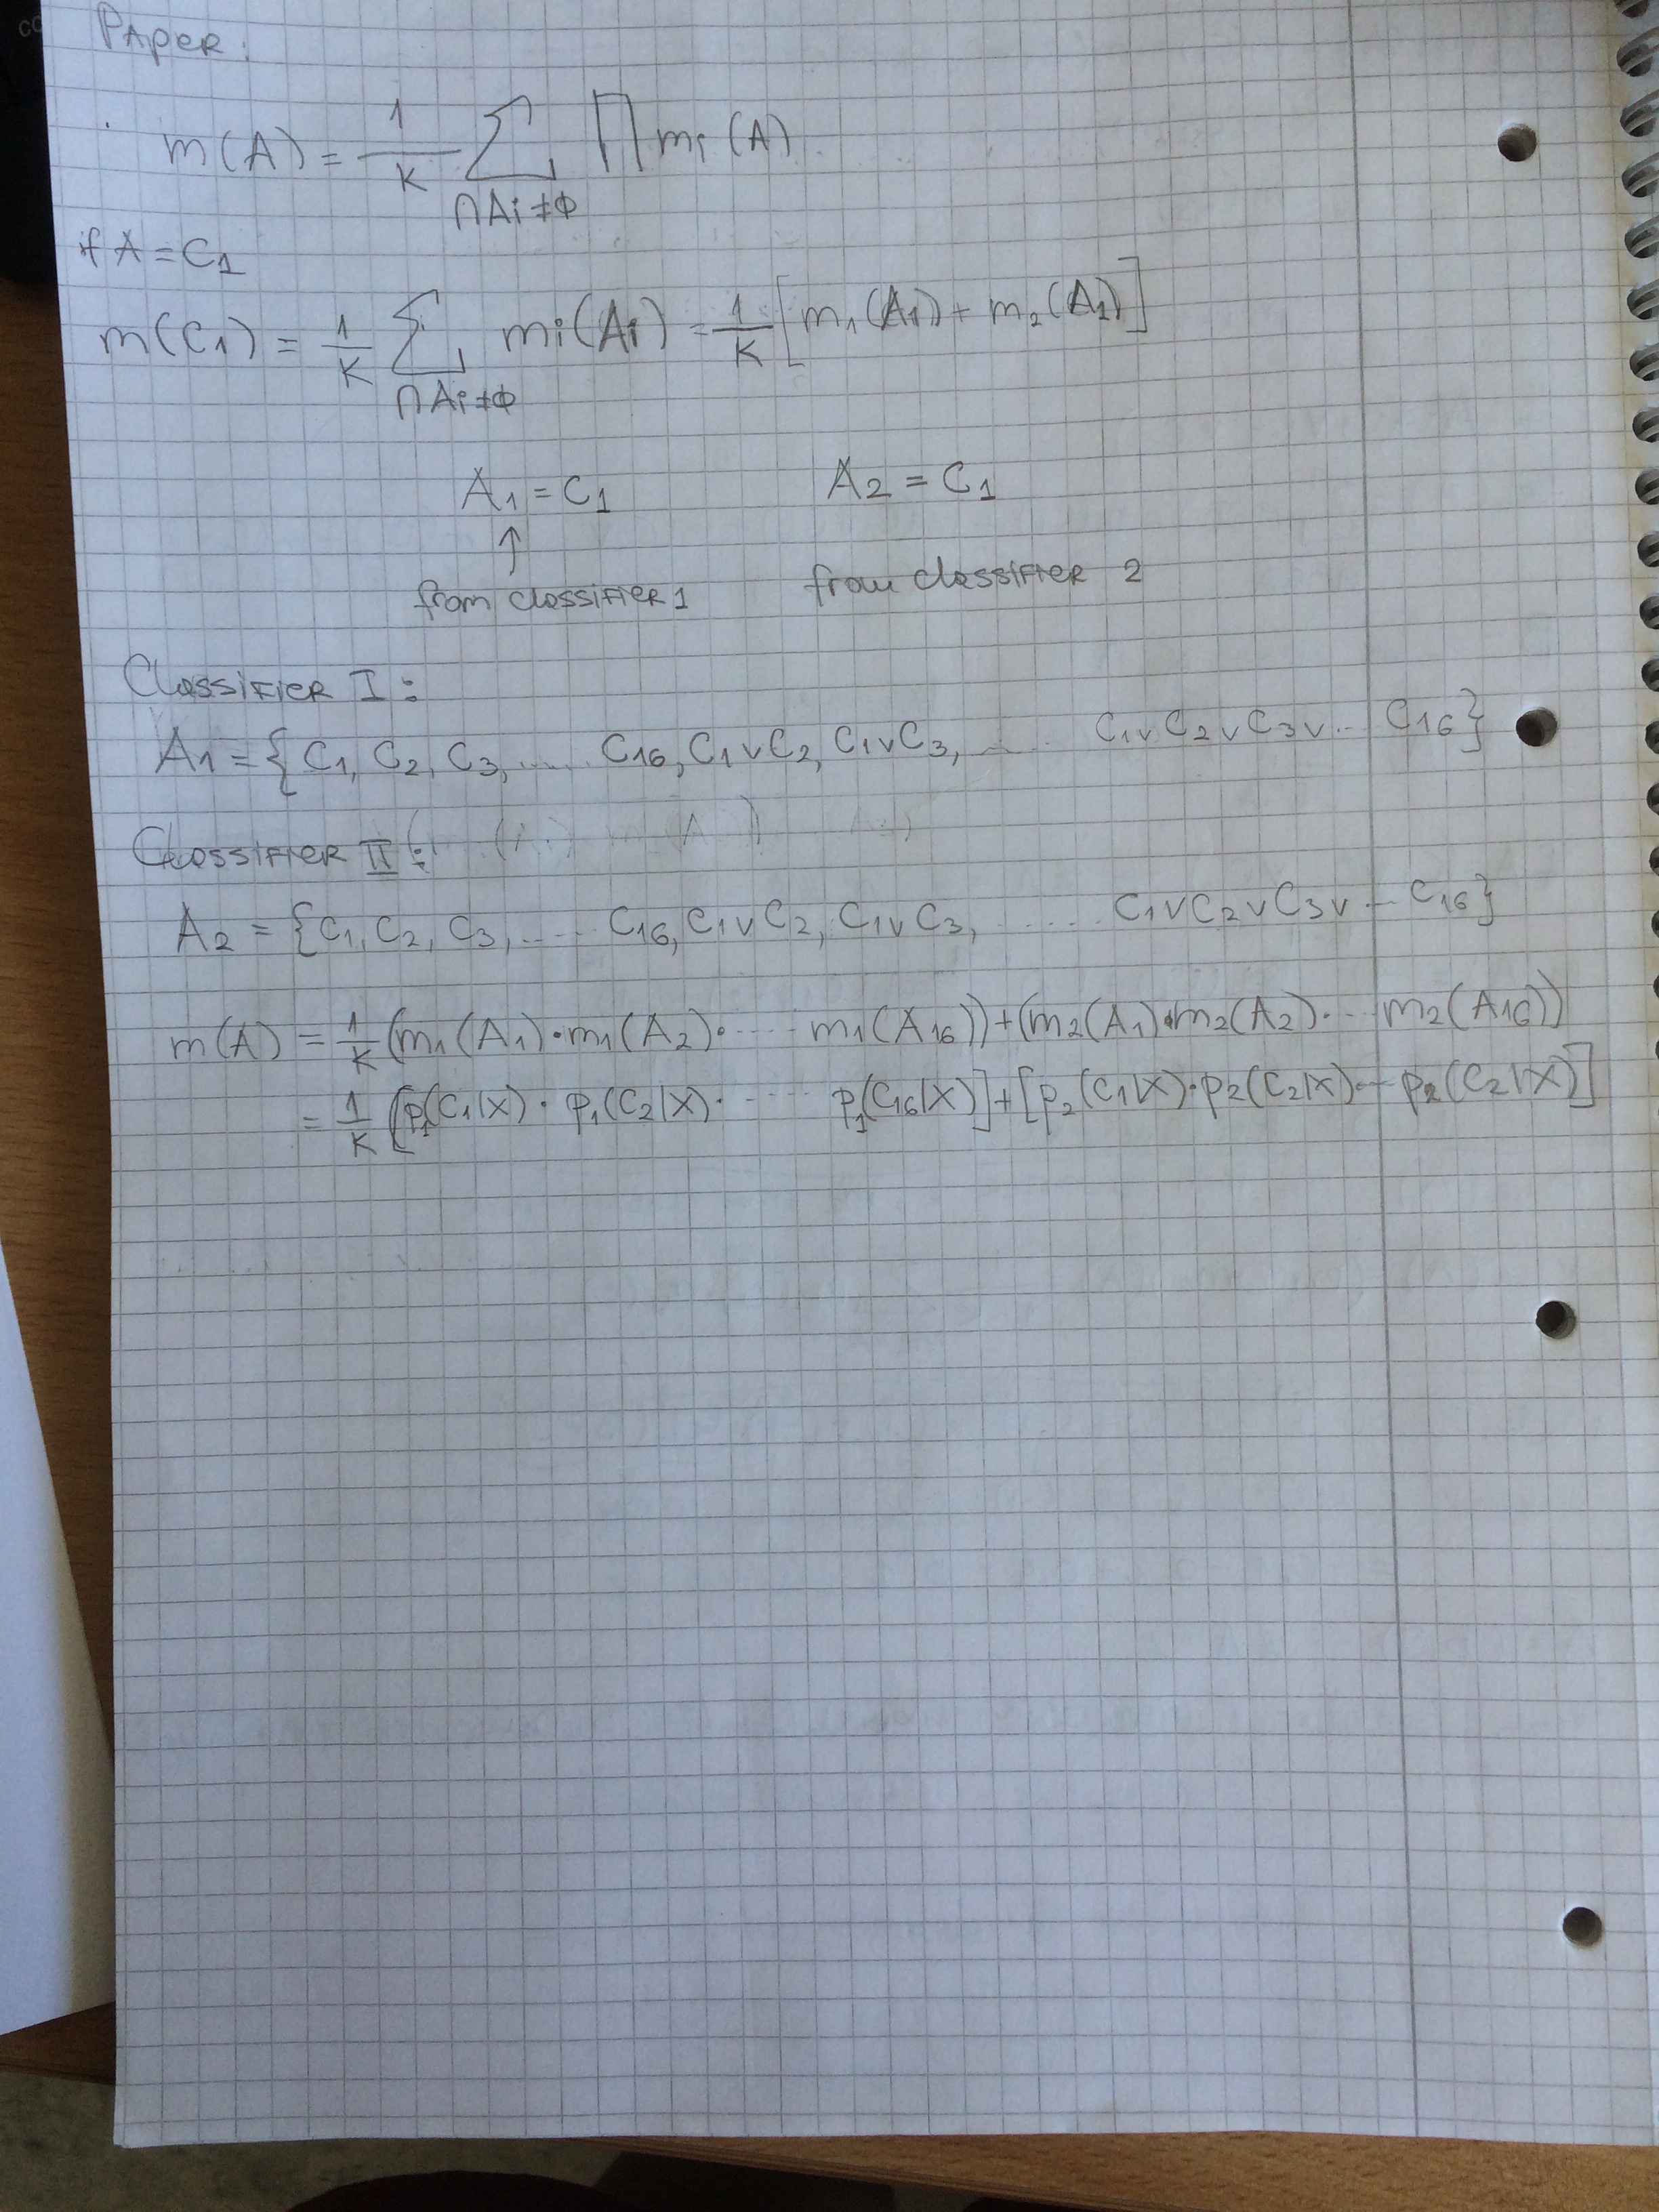 PAPER:
m(A) = 1/K ∑ ∏ mi (A)
∩Ai ≠ Φ
if A = C1
m(C1) = 1/K ∑ mi(Ai) = 1/K [m1(A1) + m2(A2)]
∩Ai ≠ Φ
A1 = C1 A2 = C1
↑
from classifier 1 from classifier 2
Classifier I :
A1 = { C1, C2, C3, ..... C16, C1 v C2, C1 v C3, ...... C1 v C2 v C3 v .. C16 }
Classifier II :
A2 = { C1, C2, C3, ..... C16, C1 v C2, C1 v C3, ...... C1 v C2 v C3 v ... C16 }
m(A) = 1/K (m1(A1) · m1(A2) · ..... m1(A16)) + (m2(A1) · m2(A2) · ... m2(A16))
= 1/K [p1(C1|X) · p1(C2|X) · ..... p1(C16|X)] + [p2(C1|X) · p2(C2|X) ... p2(C2|X)]